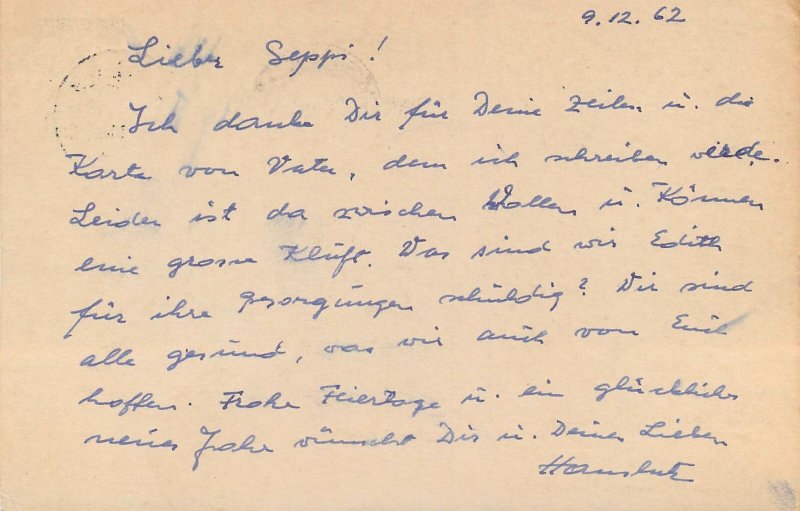 9.12.62
Lieber Seppi!
Ich danke Dir für Deine Zeilen u. die
Karte von Vater, dem ich schreiben werde.
Leider ist da zwischen Wollen u. Können
eine grosse Kluft. Was sind wir Edith
für ihre Besorgungen schuldig? Wir sind
alle gesund, was wir auch von Euch
hoffen. Frohe Feiertage u. ein glückliches
neues Jahr wünscht Dir u. Deinen Lieben